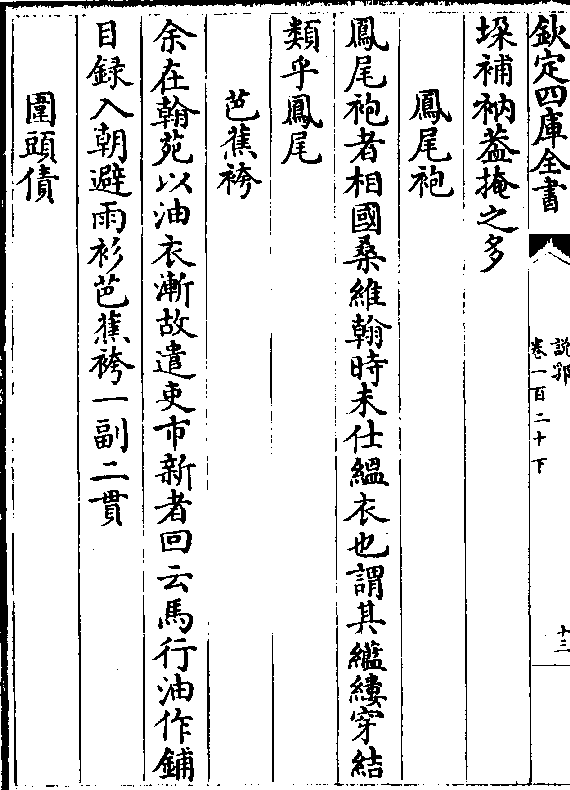 欽定四庫全書
說郛
卷一百二十下
十三
垜補衲葢掩之多
鳳尾袍
鳳尾袍者相國桑維翰時未仕緼衣也謂其繿縷穿結
類乎鳳尾
芭蕉袴
余在翰苑以油衣漸故遣吏市新者回云馬行油作鋪
目録入朝避雨衫芭蕉袴一副二貫
圍頭債